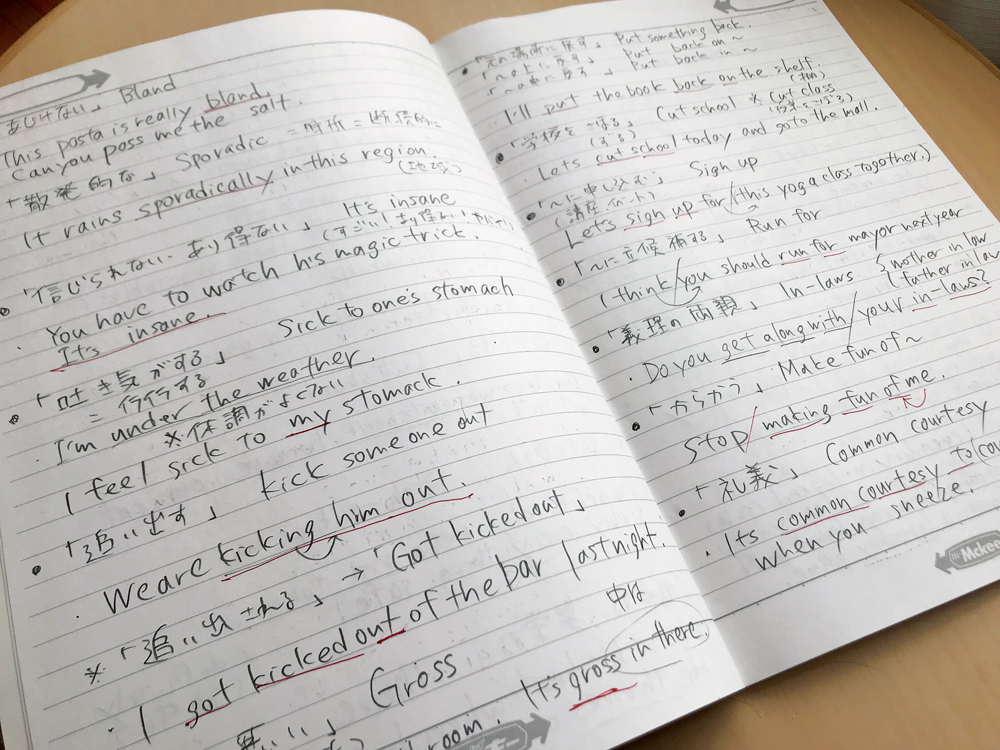 あじけない」 Bland
This pasta is really bland.
Can you poss me the salt.
「散発的な」 Sporadic =時折=断続的に
It rains sporadically in this region.
(地域)
「信じられない・あり得ない」 It's insane
(すごい!あり得ない!
You have to watch his magic trick.
It's insane.
「吐き気がする」 Sick to one's stomach
=イライラする
I'm under the weather.
※体調がよくない
I feel sick to my stomack.
「追い出す」 kick someone out
We are kicking him out.
※「追い出される」→「Got kicked out」
I got kicked out of the bar last night.
Gross
中は
room. It's gross in there.
「元の場所に戻す」 Put something back.
「〜の上に戻す」 Put back on ~
「〜の中に戻る」 Put back in ~
I'll put the book back on the shelf.
(棚)
「学校をさぼる」 Cut school ※(Cut class
(する) 授業をさぼる)
Lets cut school today and go to the mall.
「〜に申し込む」 Sign up
(講座、イベント)
Let's sign up for (this yoga class together.)
「〜に立候補する」 Run for
I think you should run for mayor next year
「義理の両親」 In-laws {mother in law
father in law
Do you get along with your in-laws?
「からかう」 Make fun of ~
Stop making fun of me.
「礼義」 Common courtesy
Its common courtesy to (cov
when you sneeze.
Mckee